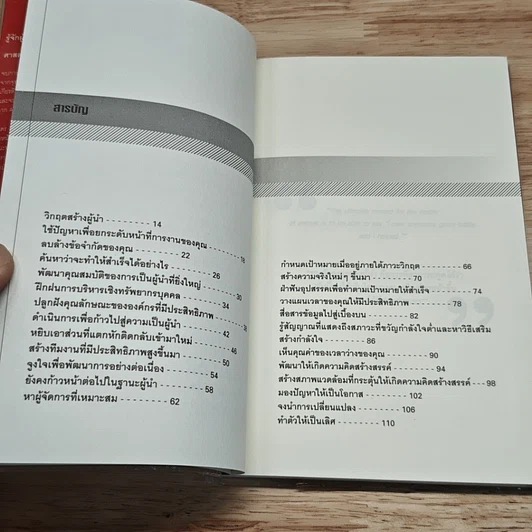 สารบัญ
วิกฤตสร้างผู้นำ - - - - - - - - 14
ใช้ปัญหาเพื่อยกระดับหน้าที่การงานของคุณ - - - - - - - 18
ลบล้างข้อจำกัดของคุณ - - - - - - - - 22
ค้นหาว่าจะทำให้สำเร็จได้อย่างไร - - - - - - - - 26
พัฒนาคุณสมบัติของการเป็นผู้นำที่ยิ่งใหญ่ - - - - - - - - 30
ฝึกฝนการบริหารเชิงทรัพยากรบุคคล - - - - - - - - 34
ปลูกฝังคุณลักษณะขององค์กรที่มีประสิทธิภาพ - - - - - - - - 38
ดำเนินการเพื่อก้าวไปสู่ความเป็นผู้นำ - - - - - - - - 42
หยิบเอาส่วนที่แตกหักติดกลับเข้ามาใหม่ - - - - - - - - 46
สร้างทีมงานที่มีประสิทธิภาพสูงขึ้นมา - - - - - - - - 50
จูงใจเพื่อพัฒนาการอย่างต่อเนื่อง - - - - - - - - 54
ยังคงก้าวหน้าต่อไปในฐานะผู้นำ - - - - - - - - 58
หาผู้จัดการที่เหมาะสม - - - - - - - - 62
กำหนดเป้าหมายเมื่ออยู่ภายใต้ภาวะวิกฤต - - - - - - - - 66
สร้างความจริงใหม่ๆ ขึ้นมา - - - - - - - - 70
ฝ่าฟันอุปสรรคเพื่อทำตามเป้าหมายให้สำเร็จ - - - - - - - - 74
วางแผนเวลาของคุณให้มีประสิทธิภาพ - - - - - - - - 78
สื่อสารข้อมูลไปสู่เบื้องบน - - - - - - - - 82
รู้สัญญาณที่แสดงถึงสภาวะที่ขวัญกำลังใจต่ำและหาวิธีเสริม
สร้างกำลังใจ - - - - - - - - 86
เห็นคุณค่าของเวลาว่างของคุณ - - - - - - - - 90
พัฒนาให้เกิดความคิดสร้างสรรค์ - - - - - - - - 94
สร้างสภาพแวดล้อมที่กระตุ้นให้เกิดความคิดสร้างสรรค์ - - - - - - - - 98
มองปัญหาให้เป็นโอกาส - - - - - - - - 102
จงนำการเปลี่ยนแปลง - - - - - - - - 106
ทำตัวให้เป็นเลิศ - - - - - - - - 110